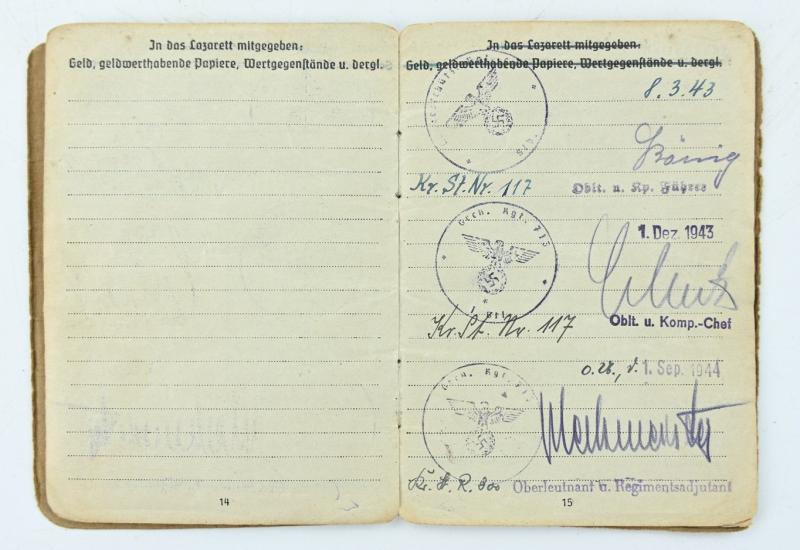 In das Lazarett mitgegeben:
Geld, geldwerthabende Papiere, Wertgegenstände u. dergl.
14
In das Lazarett mitgegeben:
Geld, geldwerthabende Papiere, Wertgegenstände u. dergl.
8.3.43
König
Kr. St. Nr. 117
Oblt. u. Kp. Führer
Gren. Rgt. 713
1. Dez. 1943
Kr. St. Nr. 117
Oblt. u. Komp.-Chef
O.U., d. 1. Sep. 1944
Gren. Rgt.
Oberleutnant u. Regimentsadjutant
15